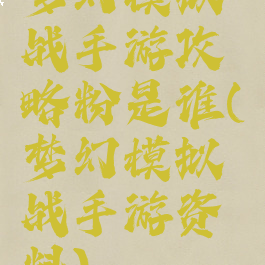 梦幻模拟
战手游攻
略粉是谁(
梦幻模拟
战手游资
料)